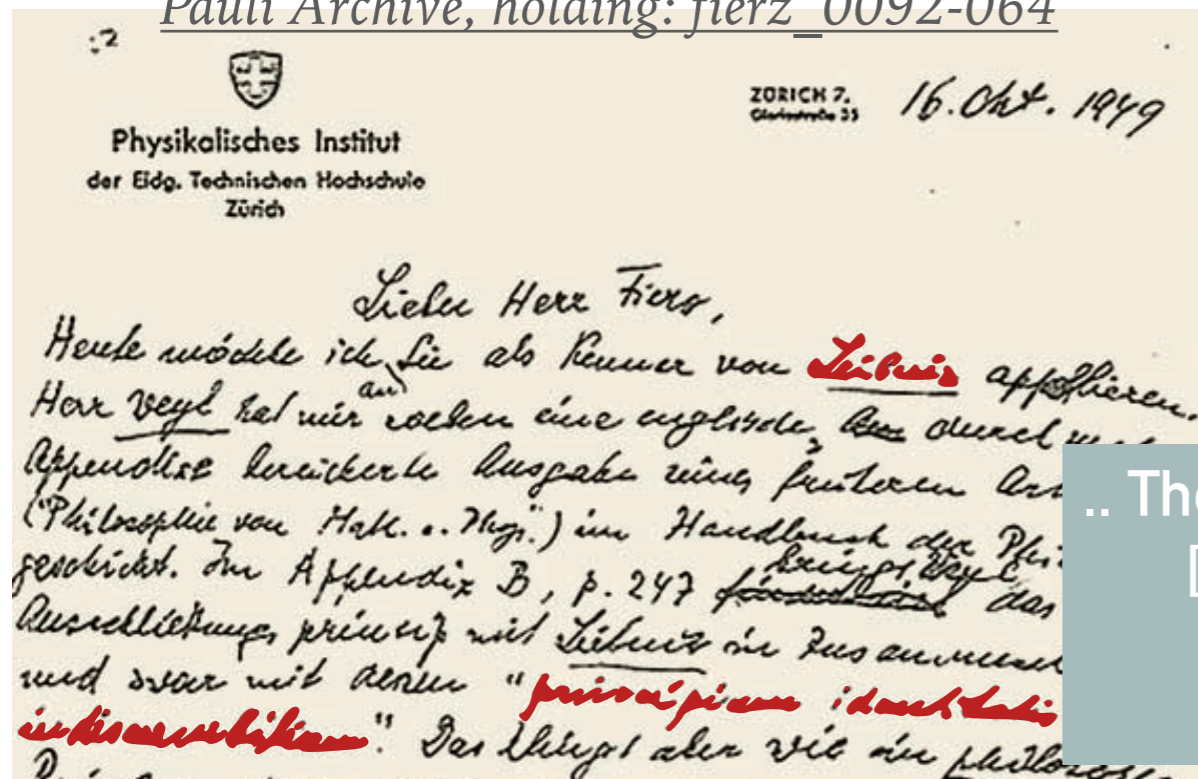 Pauli Archive, holding: fierz_0092-064
:2
Physikalisches Institut
der Eidg. Technischen Hochschule
Zürich
ZÜRICH 7,
Gloriastraße 35
16. Okt. 1949
Lieber Herr Fierz,
Heute möchte ich Sie als Kenner von Leibniz appellieren.
an
Herr Weyl hat mir soeben eine englische, durch
Appendixe bereicherte Ausgabe seines früheren
("Philosophie von Math. u. Phys.") im Handbuch der
geschickt. Im Appendix B, p. 247 bringt Weyl das
Ausschließungsprinzip mit Leibniz in
und zwar mit dem "principium identitatis
indiscernibilium". Das klingt aber wie ein
.. Th